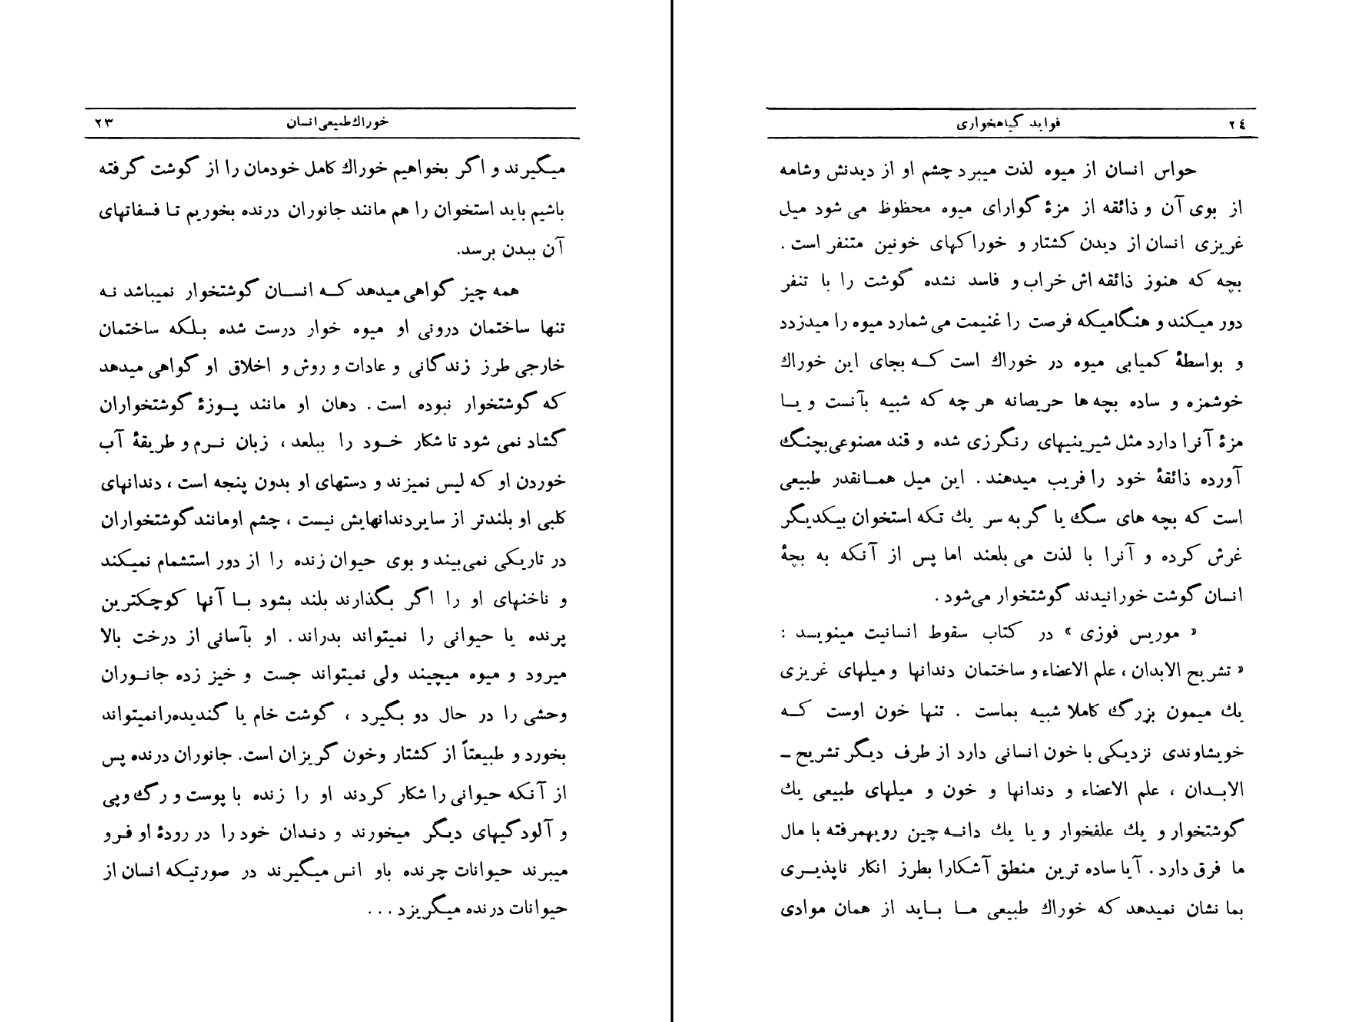 خوراك طبیعی انسان ۲۳
میگیرند و اگر بخواهیم خوراك کامل خودمان را از گوشت گرفته
باشیم باید استخوان را هم مانند جانوران درنده بخوریم تـا فسفاتهای
آن ببدن برسد.
همه چیز گواهی میدهد کـه انسـان گوشتخوار نمیباشد نـه
تنها ساختمان درونی او میوه خوار درست شده بـلـکه ساختمان
خارجی طرز زندگانی و عادات و روش و اخلاق او گواهی میدهد
که گوشتخوار نبوده است . دهان او مانند پـوزهٔ گوشتخواران
گشاد نمی شود تا شکار خـود را ببلعد ، زبان نـرم و طریقهٔ آب
خوردن او که لیس نمیزند و دستهای او بدون پنجه است ، دندانهای
کلبی او بلندتر از سایر دندانهایش نیست ، چشم او مانند گوشتخواران
در تاریکی نمی‌بیند و بوی حیوان زنده را از دور استشمام نمیکند
و ناخنهای او را اگر بگذارند بلند بشود بـا آنها کوچکترین
پرنده یا حیوانی را نمیتواند بدراند . او بآسانی از درخت بالا
میرود و میوه میچیند ولی نمیتواند جست و خیز زده جانـوران
وحشی را در حال دو بگیرد ، گوشت خام یا گندیده را نمیتواند
بخورد و طبیعتاً از کشتار وخون گریزان است. جانوران درنده پس
از آنکه حیوانی را شکار کردند او را زنده با پوست و رگ وپی
و آلودگیهای دیگر میخورند و دندان خود را در رودهٔ او فـرو
میبرند حیوانات چرنده باو انس میگیرند در صورتیکه انسان از
حیوانات درنده میگریزد . . .
فواید گیاهخواری ۲٤
حواس انسان از میوه لذت میبرد چشم او از دیدنش وشامه
از بوی آن و ذائقه از مزهٔ گوارای میوه محظوظ می شود میل
غریزی انسان از دیدن کشتار و خوراکهای خونین متنفر است .
بچه که هنوز ذائقه اش خراب و فاسد نشده گوشت را با تنفر
دور میکند و هنگامیکه فرصت را غنیمت می شمارد میوه را میدزدد
و بواسطهٔ کمیابی میوه در خوراك است کـه بجای این خوراك
خوشمزه و ساده بچه ها حریصانه هر چه که شبیه بآنست و یـا
مزهٔ آنرا دارد مثل شیرینیهای رنگرزی شده و قند مصنوعی بچنگ
آورده ذائقهٔ خود را فریب میدهند . این میل همـانقدر طبیعی
است که بچه های سگ یا گربه سر یك تکه استخوان بیکدیگر
غرش کرده و آنرا با لذت می بلعند اما پس از آنکه به بچهٔ
انسان گوشت خورانیدند گوشتخوار می‌شود .
« موریس فوزی » در کتاب سقوط انسانیت مینویسد :
« تشریح الابدان ، علم الاعضاء و ساختمان دندانها و میلهای غریزی
یك میمون بزرگ کاملا شبیه بماست . تنها خون اوست کـه
خویشاوندی نزدیکی با خون انسانی دارد از طرف دیگر تشریح ـ
الابـدان ، علم الاعضاء و دندانها و خون و میلهای طبیعی یك
گوشتخوار و یك علفخوار و یا یك دانـه چین رویهمرفته با مال
ما فرق دارد . آیا ساده ترین منطق آشکارا بطرز انکار ناپذیـری
بما نشان نمیدهد که خوراك طبیعی مـا بـاید از همان موادی